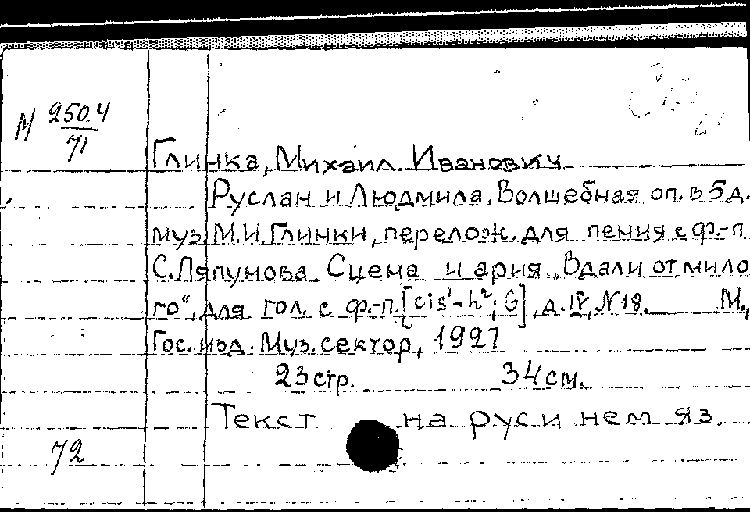 М 250.4
71
Глинка, Михаил Иванович
Руслан и Людмила. Волшебная оп. в 5 д.
муз. М.И. Глинки, перелож. для пения с ф.-п.
С. Ляпунова. Сцена и ария „Вдали от мило
го“, для гол. с ф.-п. [cis¹-h²; G], д. IV, N 18. М.,
Гос. изд. Муз. сектор, 1927
23 стр. 34 см.
Текст на рус. и нем яз.
72